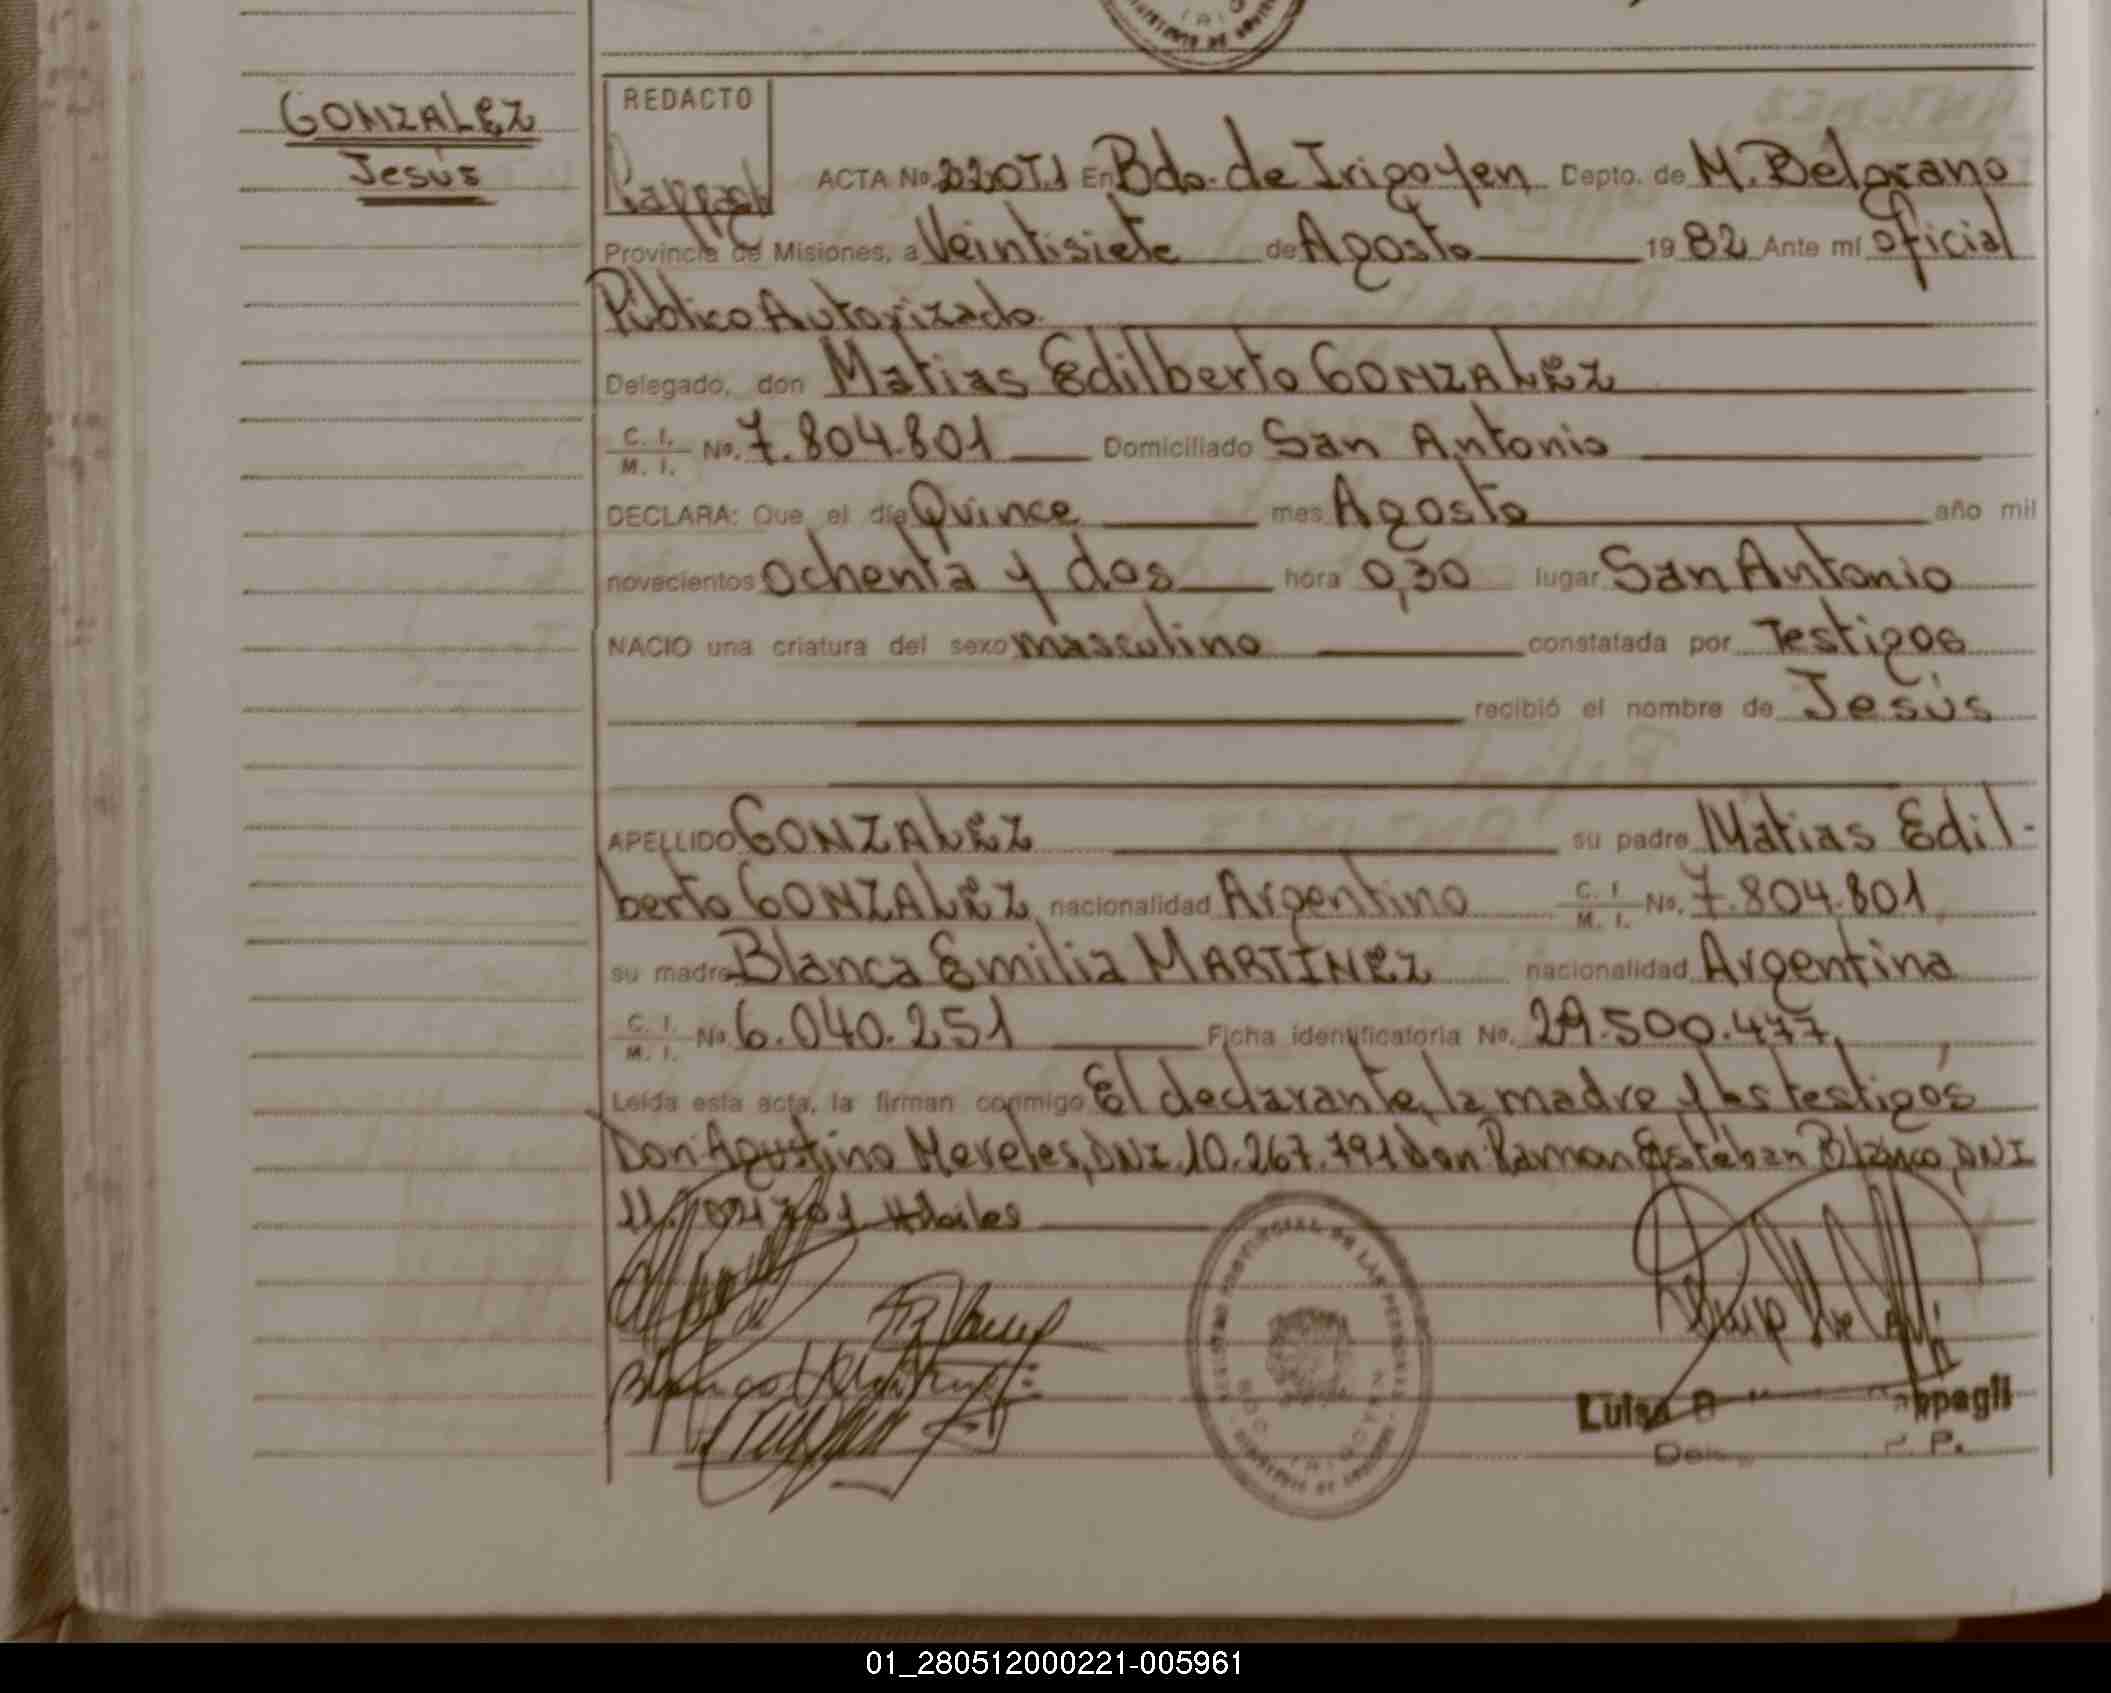 GONZALEZ
Jesús
REDACTO
ACTA No. 220T.1 En Bdo. de Irigoyen Depto. de M. Belgrano
Provincia de Misiones, a Veintisiete de Agosto 1982 Ante mí oficial
Público Autorizado
Delegado, don Matias Edilberto GONZALEZ
C. I. / M. I. No. 7.804.801 Domiciliado San Antonio
DECLARA: Que el día Quince mes Agosto año mil
novecientos ochenta y dos hora 0,30 lugar San Antonio
NACIO una criatura del sexo masculino constatada por Testigos
recibió el nombre de Jesús
APELLIDO GONZALEZ su padre Matias Edil-
berto GONZALEZ nacionalidad Argentino C. I. / M. I. No. 7.804.801
su madre Blanca Emilia MARTÍNEZ nacionalidad Argentina
C. I. / M. I. No. 6.040.251 Ficha identificatoria No. 29.500.477
Leída esta acta, la firman conmigo El declarante, la madre y los testigos
Don Agustino Mereles, DNI. 10.267.791 Don Ramon Estéban Blanco, DNI
REGISTRO PROVINCIAL DE LAS PERSONAS
Luisa
01_280512000221-005961